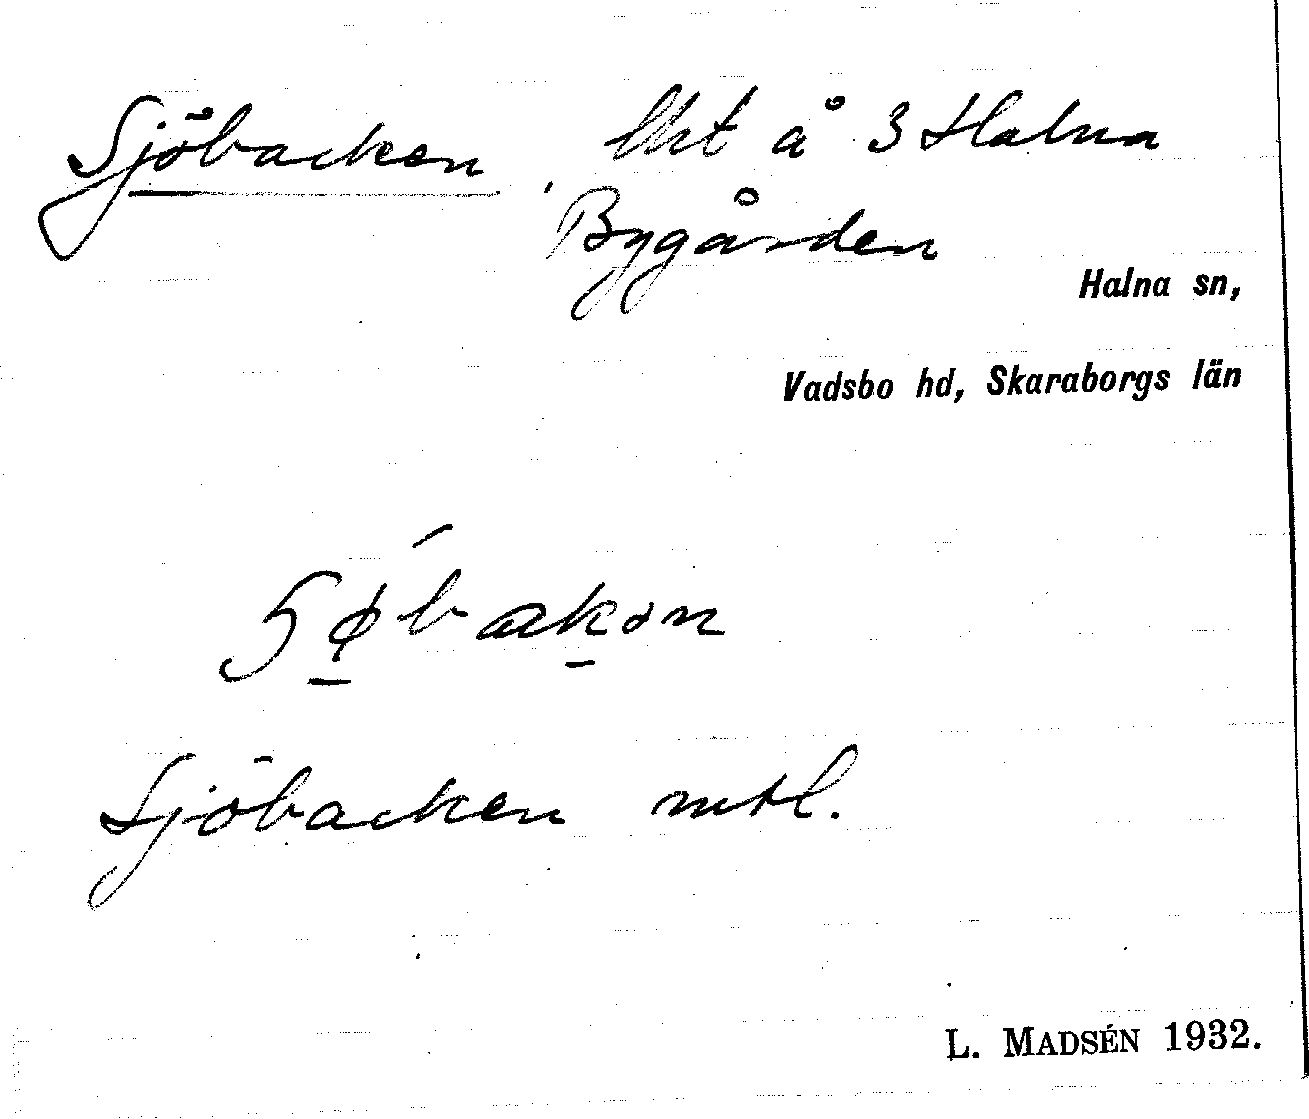 Sjöbacken, lht å 3 Halna
Bygården
Halna sn,
Vadsbo hd, Skaraborgs län
Sjöbacken mtl.
L. MADSÉN 1932.